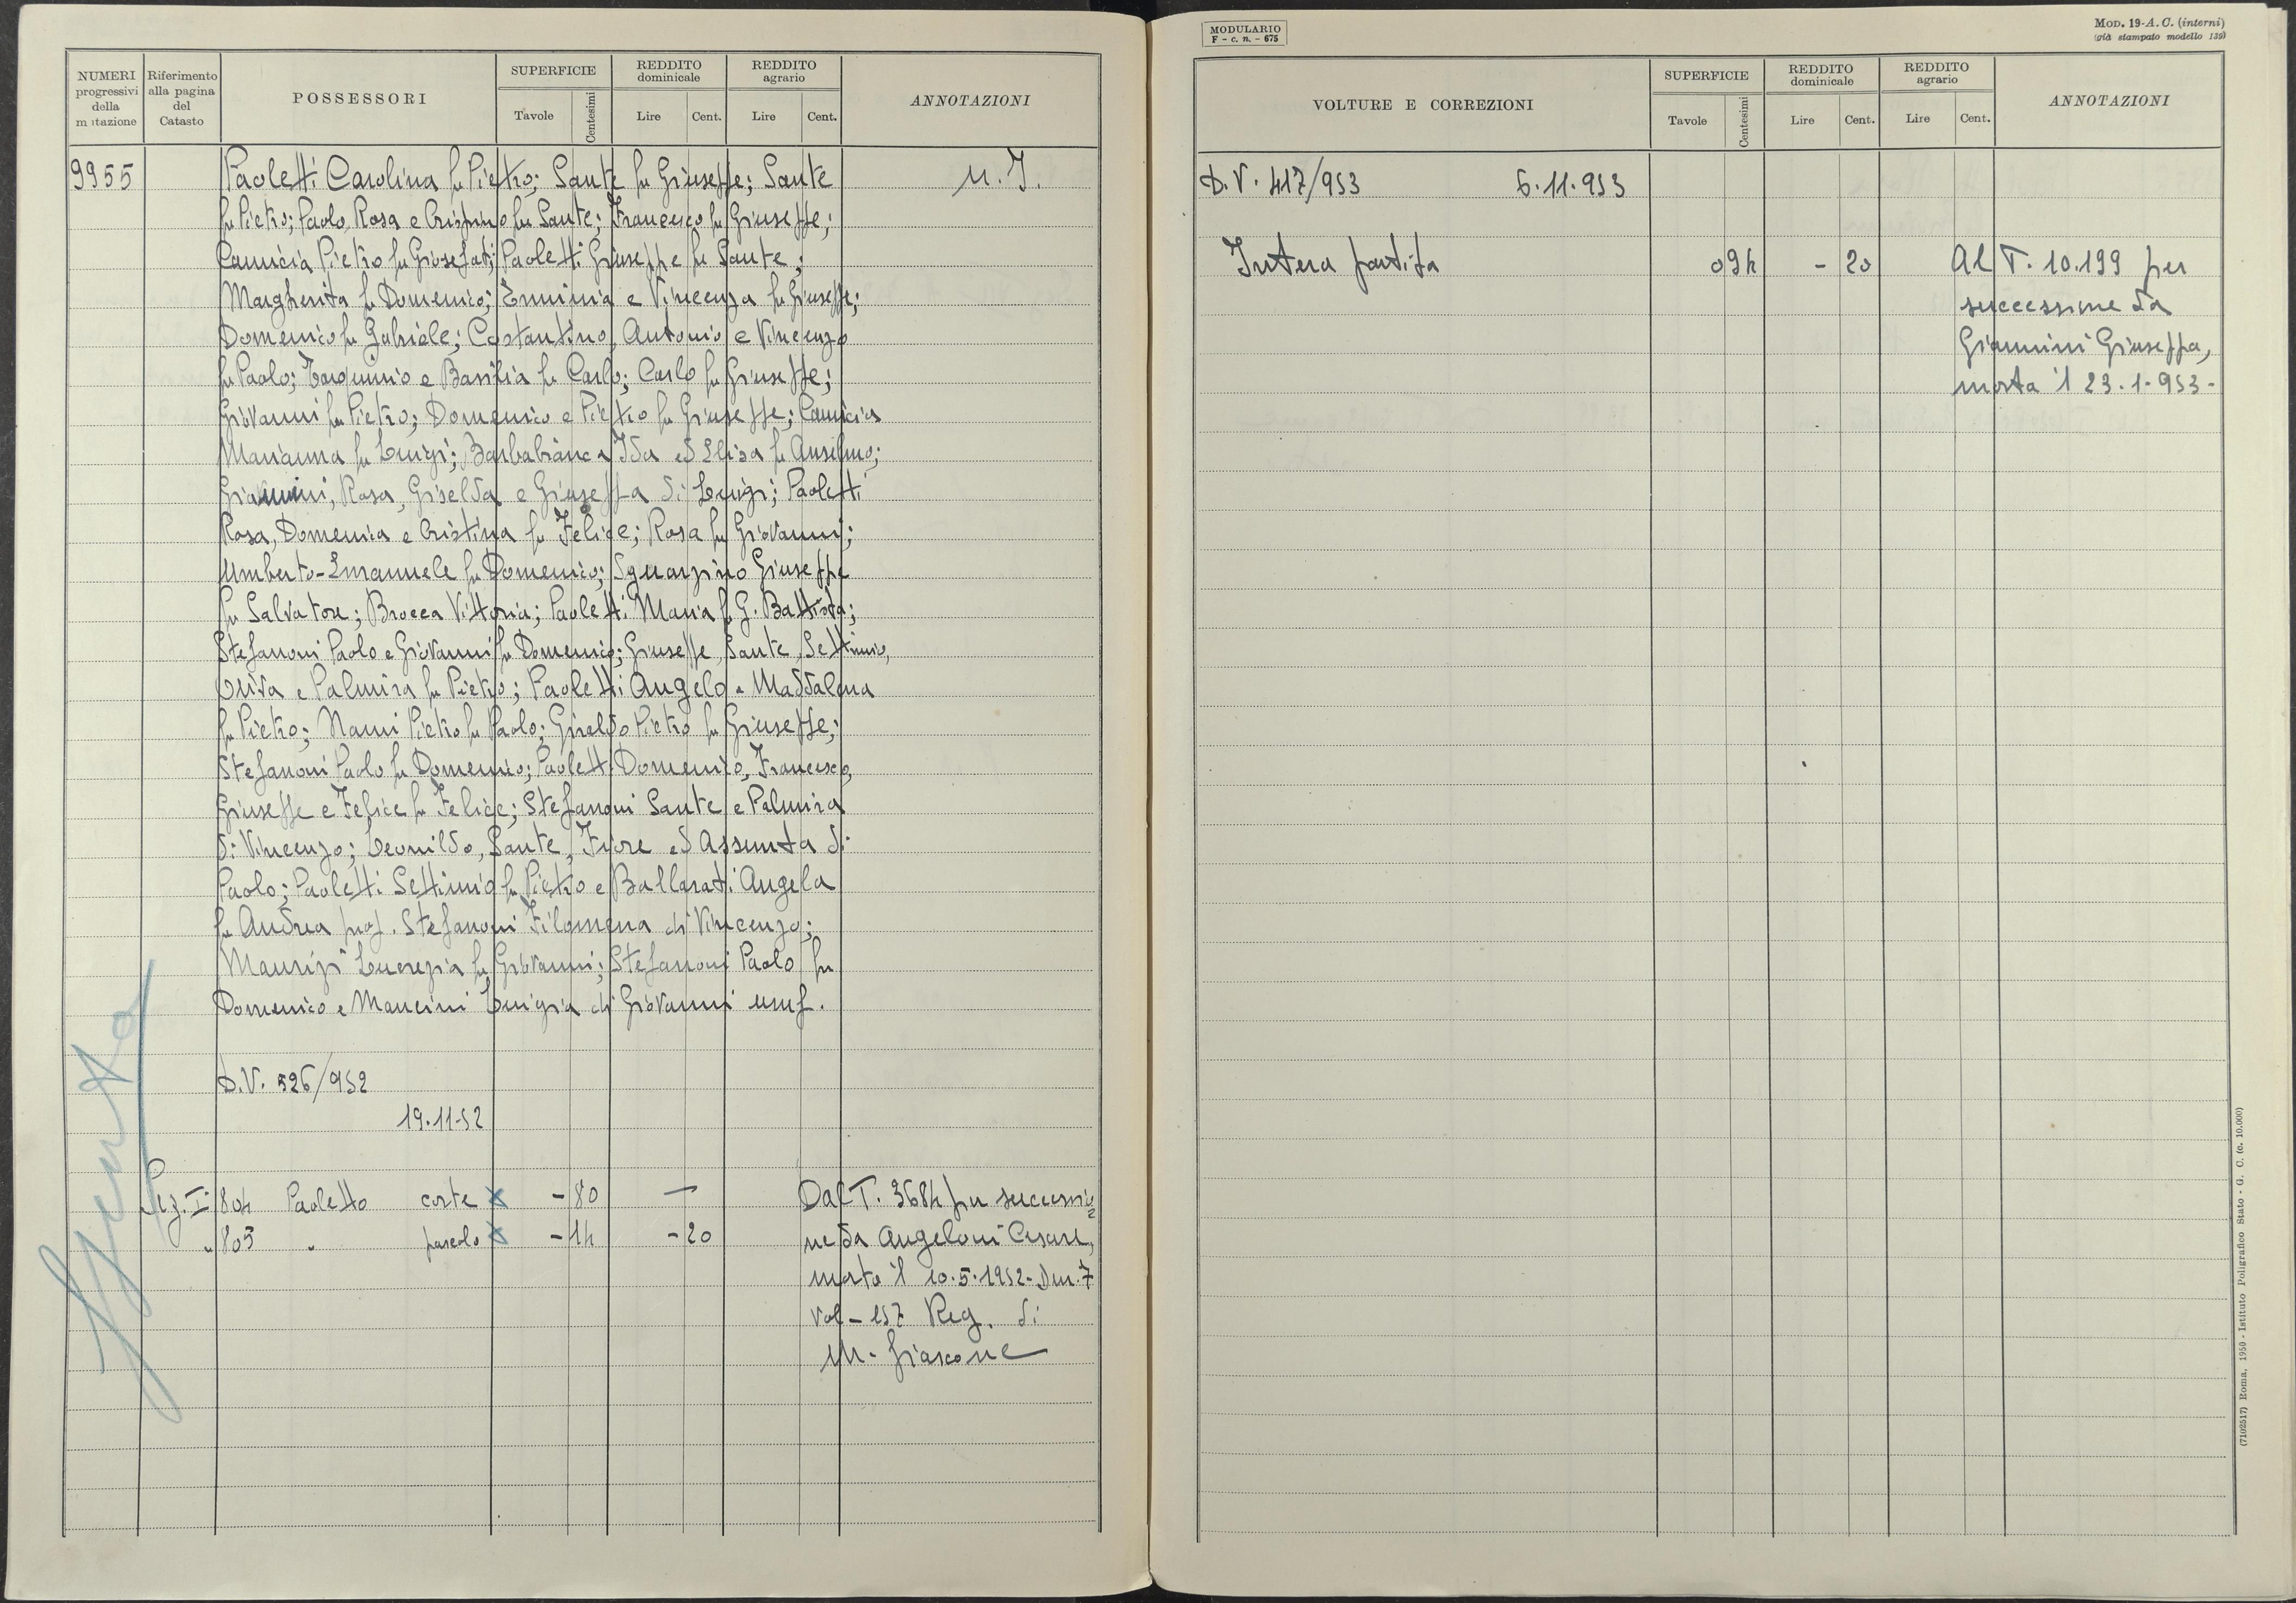 NUMERI progressivi della mutazione
Riferimento alla pagina del Catasto
POSSESSORI
SUPERFICIE
Tavole
Centesimi
REDDITO dominicale
Lire
Cent.
REDDITO agrario
Lire
Cent.
ANNOTAZIONI
9955
Paoletti Carolina fu Pietro; Sante fu Giuseppe; Sante
fu Pietro; Paolo, Rosa e Crispino fu Sante; Francesco fu Giuseppe;
Camicia Pietro fu Giosefat; Paoletti Giuseppe fu Sante;
Margherita fu Domenico; Erminia e Vincenza fu Giuseppe;
Domenico fu Gabriele; Costantino, Antonio e Vincenzo
fu Paolo; Tarquinio e Basilia fu Carlo; Carlo fu Giuseppe;
Giovanni fu Pietro; Domenico e Pietro fu Giuseppe; Camicia
Marianna fu Luigi; Barbabianca Ida ed Elisa fu Anselmo;
Giannini, Rosa, Giselda e Giuseppa di Luigi; Paoletti
Rosa, Domenica e Cristina fu Felice; Rosa fu Giovanni;
Umberto-Emanuele fu Domenico; Sguarzino Giuseppe
fu Salvatore; Brocca Vittoria; Paoletti Maria fu G. Battista;
Stefanoni Paolo e Giovanni fu Domenico; Giuseppe, Sante, Settimio,
e Palmira fu Pietro; Paoletti Angelo e Maddalena
fu Pietro; Nami Pietro fu Paolo; Giraldo Pietro fu Giuseppe;
Stefanoni Paolo fu Domenico; Paoletti Domenico, Francesco,
Giuseppe e Felice fu Felice; Stefanoni Sante e Palmira
di Vincenzo; Leonildo, Sante, Fiore ed Assunta di
Paolo; Paoletti Settimio fu Pietro e Ballarati Angela
fu Andrea prop. Stefanoni Filomena di Vincenzo;
Maurizi Lucrezia fu Giovanni; Stefanoni Paolo fu
Domenico e Mancini Luigia di Giovanni usuf.
M. I.
D.V. 526/952
19.11.52
Sez. I 804 Paoletto corte x - 80 —
" 805 " pascolo x - 14 - 20
Dal T. 3684 per successio
ne da Angeloni Cesare,
morto il 10.5.1952. Den. 7
Vol - 157 Reg. di
M. fiascone
Spento
MODULARIO
F - c. n. - 675
MOD. 19-A. C. (interni)
(già stampato modello 139)
VOLTURE E CORREZIONI
SUPERFICIE
Tavole
Centesimi
REDDITO dominicale
Lire
Cent.
REDDITO agrario
Lire
Cent.
ANNOTAZIONI
D.V. 417/953 6.11.953
Intera partita 0 94 - 20
Al T. 10.199 per
successione da
Giannini Giuseppa,
morta il 23.1.953-
(7102517) Roma, 1950 - Istituto Poligrafico Stato - G. C. (c. 10.000)